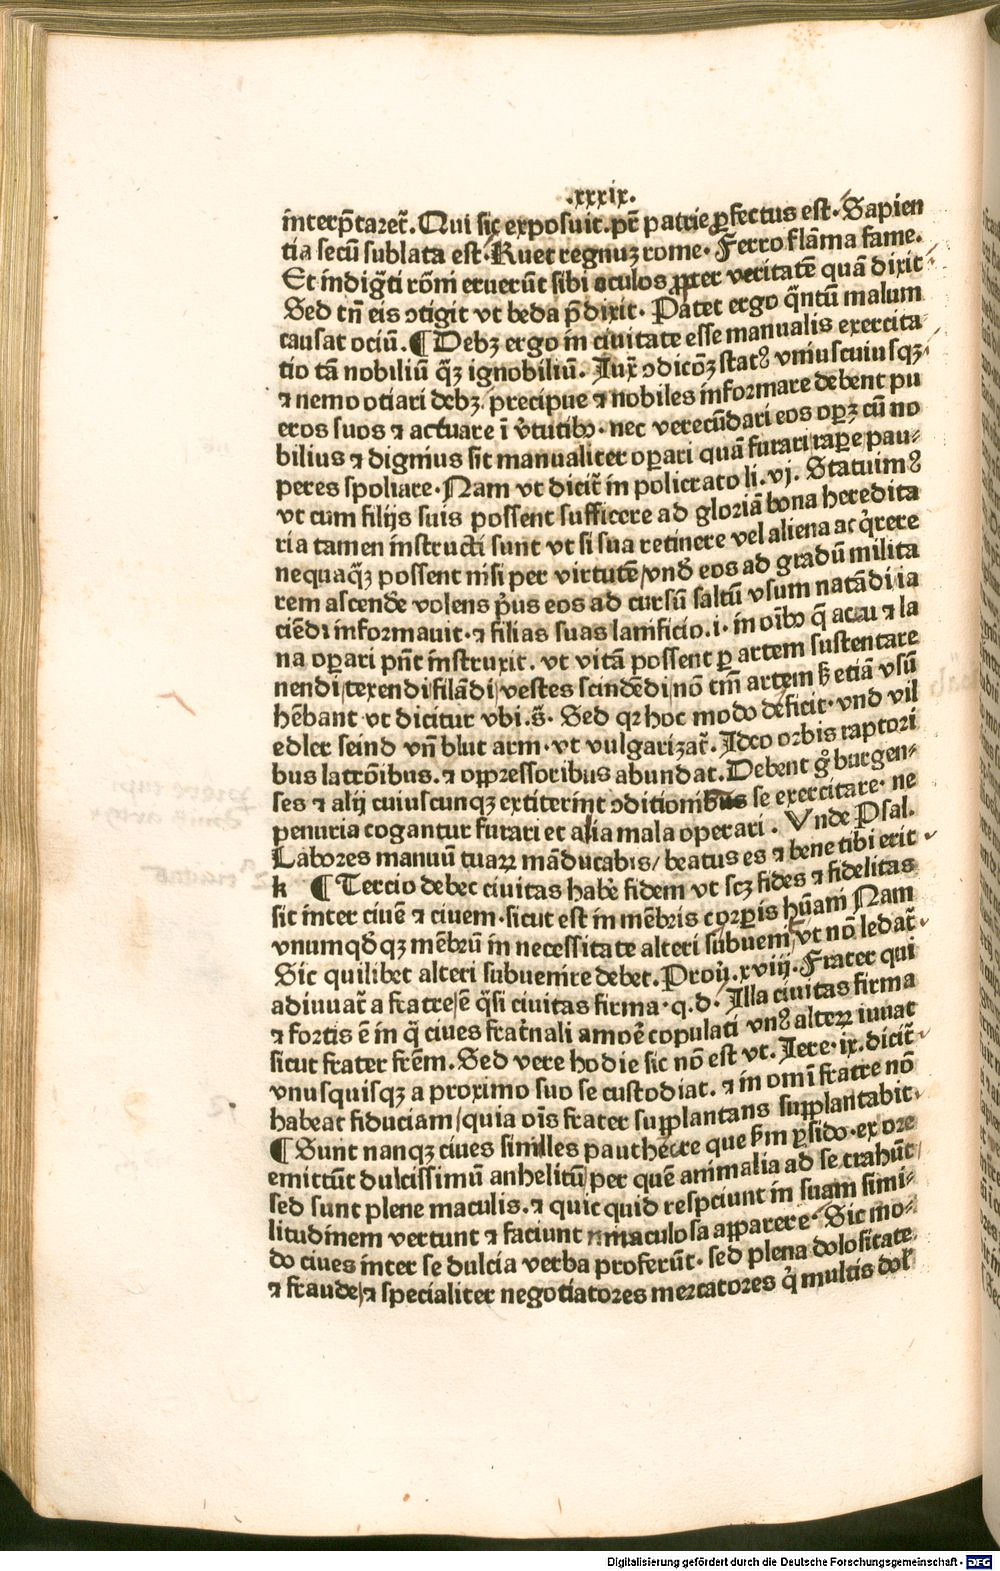 .xxxix.
interp̄tareť. Qui sic exposuit. pr̄ patrie ꝑfectus est. Sapien
tia secū sublata est. Ruet regnuꝫ rome. Ferro flāma fame.
Et indiḡti rōni eruerūt sibi oculos ꝓpter veritatē quā dixit
Sed tn̄ eis ↄtigit vt beda p̄dixit. Patet ergo q̄ntū malum
causat ociū. ¶ Debꝫ ergo in ciuitate esse manualis exercita
tio tā nobiliū q̄ꝫ ignobiliū. Iux̄ ↄdicōꝫ statꝰ vniuscuiusqꝫ
⁊ nemo otiari debꝫ. precipue ⁊ nobiles informare debent pu
eros suos ⁊ actuare ī v̓tutibꝫ. nec verecūdari eos oꝑꝫ cū no
bilius ⁊ dignius sit manualiter oꝑari quā furari raꝑe pau⸗
peres spoliare. Nam vt diciť in policrato li. vj. Statuimꝰ
vt cum filijs suis possent sufficere ad gloriā bona heredita
ria tamen instructi sunt vt si sua retinere vel aliena acq̓rere
nequaq̄ꝫ possent nisi per virtutē/vnď eos ad gradū milita
rem ascende̓ volens p̓us eos ad cursū saltū vsum natādi ia
ciēdi informauit. ⁊ filias suas lanificio. i. in oībꝫ q̄ acu ⁊ la
na oꝑari pn̄t instruxit. vt vitā possent ꝑ artem sustentare
nendi/texendi/filādi/vestes scindēdi nō tm̄ artem ẜ etiā vsū
hēbant vt dicitur vbi. s̄. Sed qꝛ hoc modo deficit. vnd vil
edler seind vn̄ blut arm. vt vulgarizať. Ideo orbis raptori
bus latrōibus. ⁊ oppressoribus abundat. Debent gͦ burgen⸗
ses ⁊ alij cuiuscunqꝫ extiterint ↄditionibus se exercitare. ne
penuria cogantur furari et alia mala operari. Vnde Psal.
Labores manuū tuaꝝ māducabis/ beatus es ⁊ bene tibi erit
k ¶ Tercio debet ciuitas habe̓ fidem vt scꝫ fides ⁊ fidelitas
sit inter ciuē ⁊ ciuem. sicut est in mēbris corꝑis hūani Nam
vnumqďqꝫ mēbrū in necessitate alteri subuenit/vt nō ledať.
Sic quilibet alteri subuenire debet. Prou̓. xviij. Frater qui
adiuuať a fratre/ē q̄si ciuitas firma. q. d. Illa ciuitas firma
⁊ fortis ē in q̄ ciues frať̄nali amoe̓ copulati vnꝰ alteꝝ iuuat
sicut frater fr̄em. Sed vere hodie sic nō est vt. Iere. ix. diciť
vnusquisqꝫ a proximo suo se custodiat. ⁊ in omī fratre nō
habeat fiduciam/quia oīs frater supplantans supplantabit.
¶ Sunt nanqꝫ ciues similes panthere que ẜm ysido. ex ore
emittūt dulcissimū anhelitū/per quē animalia ad se trahūt/
sed sunt plene maculis. ⁊ quic quid respciunt in suam simi⸗
litudinem vertunt ⁊ faciunt maculosa apparere. Sic mo⸗
do ciues inter se dulcia verba proferūt. sed plena dolositate
⁊ fraude/⁊ specialiter negotiatores mercatores q̓ multis dol̓
Digitalisierung gefördert durch die Deutsche Forschungsgemeinschaft - DFG